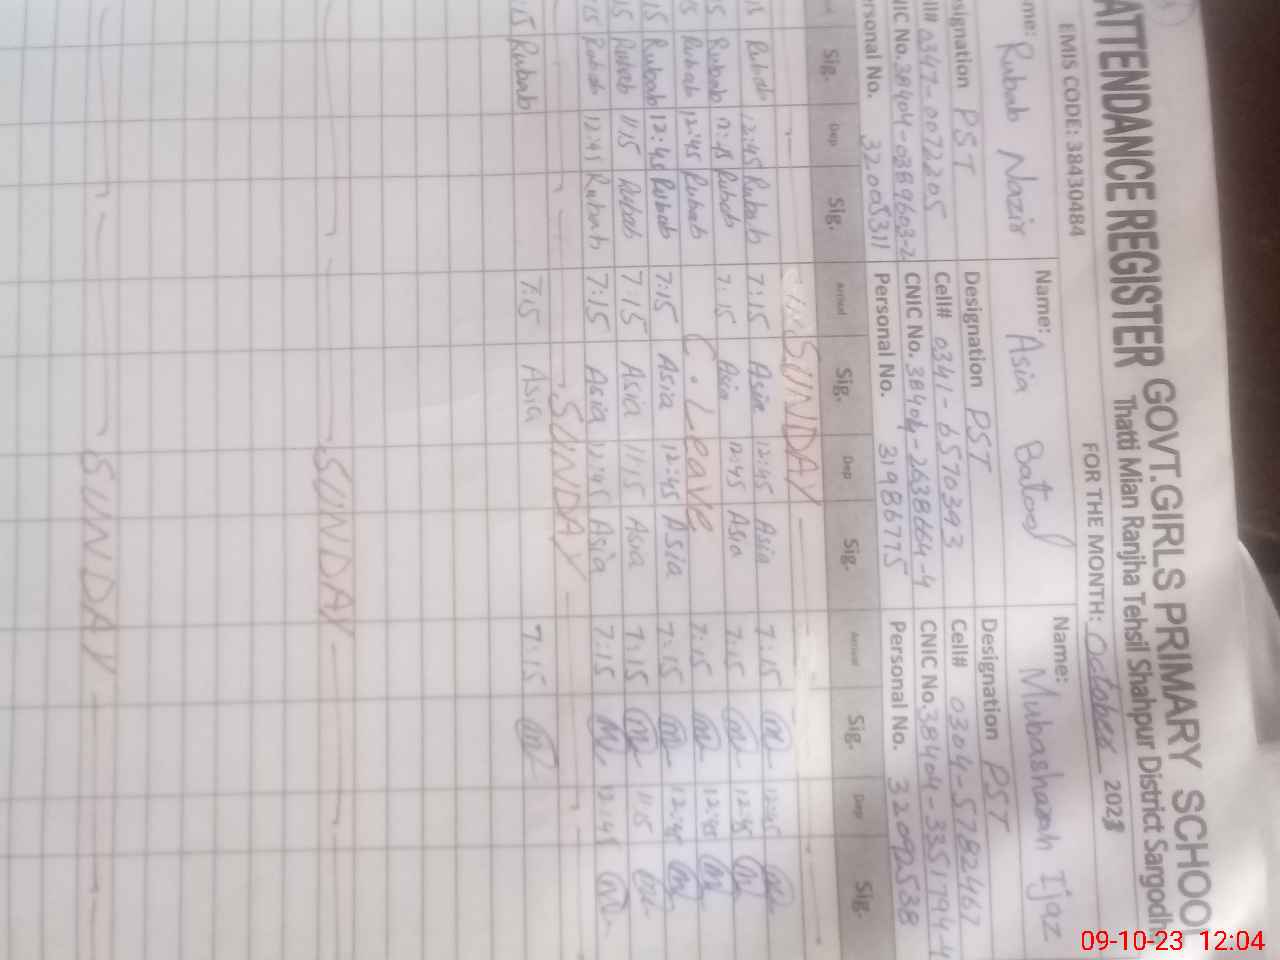 ATTENDANCE REGISTER GOVT.GIRLS PRIMARY SCHOOL
Thatti Mian Ranjha Tehsil Shahpur District Sargodh
EMIS CODE: 38430484 FOR THE MONTH: October 2023
me: Rubab Nazir Name: Asia Batool Name: Mubasharah Ijaz
signation PST Designation PST Designation PST
Cell# 0347-0072205 Cell# 0341-6570393 Cell# 0304-5782467
NIC No. 38404-0389603-2 CNIC No. 38404-2638664-4 CNIC No. 38404-3351794-4
rsonal No. 32005311 Personal No. 31986775 Personal No. 32092538
Sig. Dep Sig. Arrival Sig. Dep Sig. Arrival Sig. Dep Sig.
SUNDAY
15 Rubab 12:45 Rubab 7:15 Asia 12:45 Asia 7:15 12:45
15 Rubab 12:45 Rubab 7:15 Asia 12:45 Asia 7:15 12:45
15 Rubab 12:45 Rubab C. Leave 7:15 12:45
15 Rubab 12:45 Rubab 7:15 Asia 12:45 Asia 7:15 12:45
15 Rubab 11:15 Rubab 7:15 Asia 11:15 Asia 7:15 11:15
15 Rubab 12:45 Rubab 7:15 Asia 12:45 Asia 7:15 12:45
SUNDAY
:15 Rubab 7:15 Asia 7:15
SUNDAY
SUNDAY
09-10-23 12:04